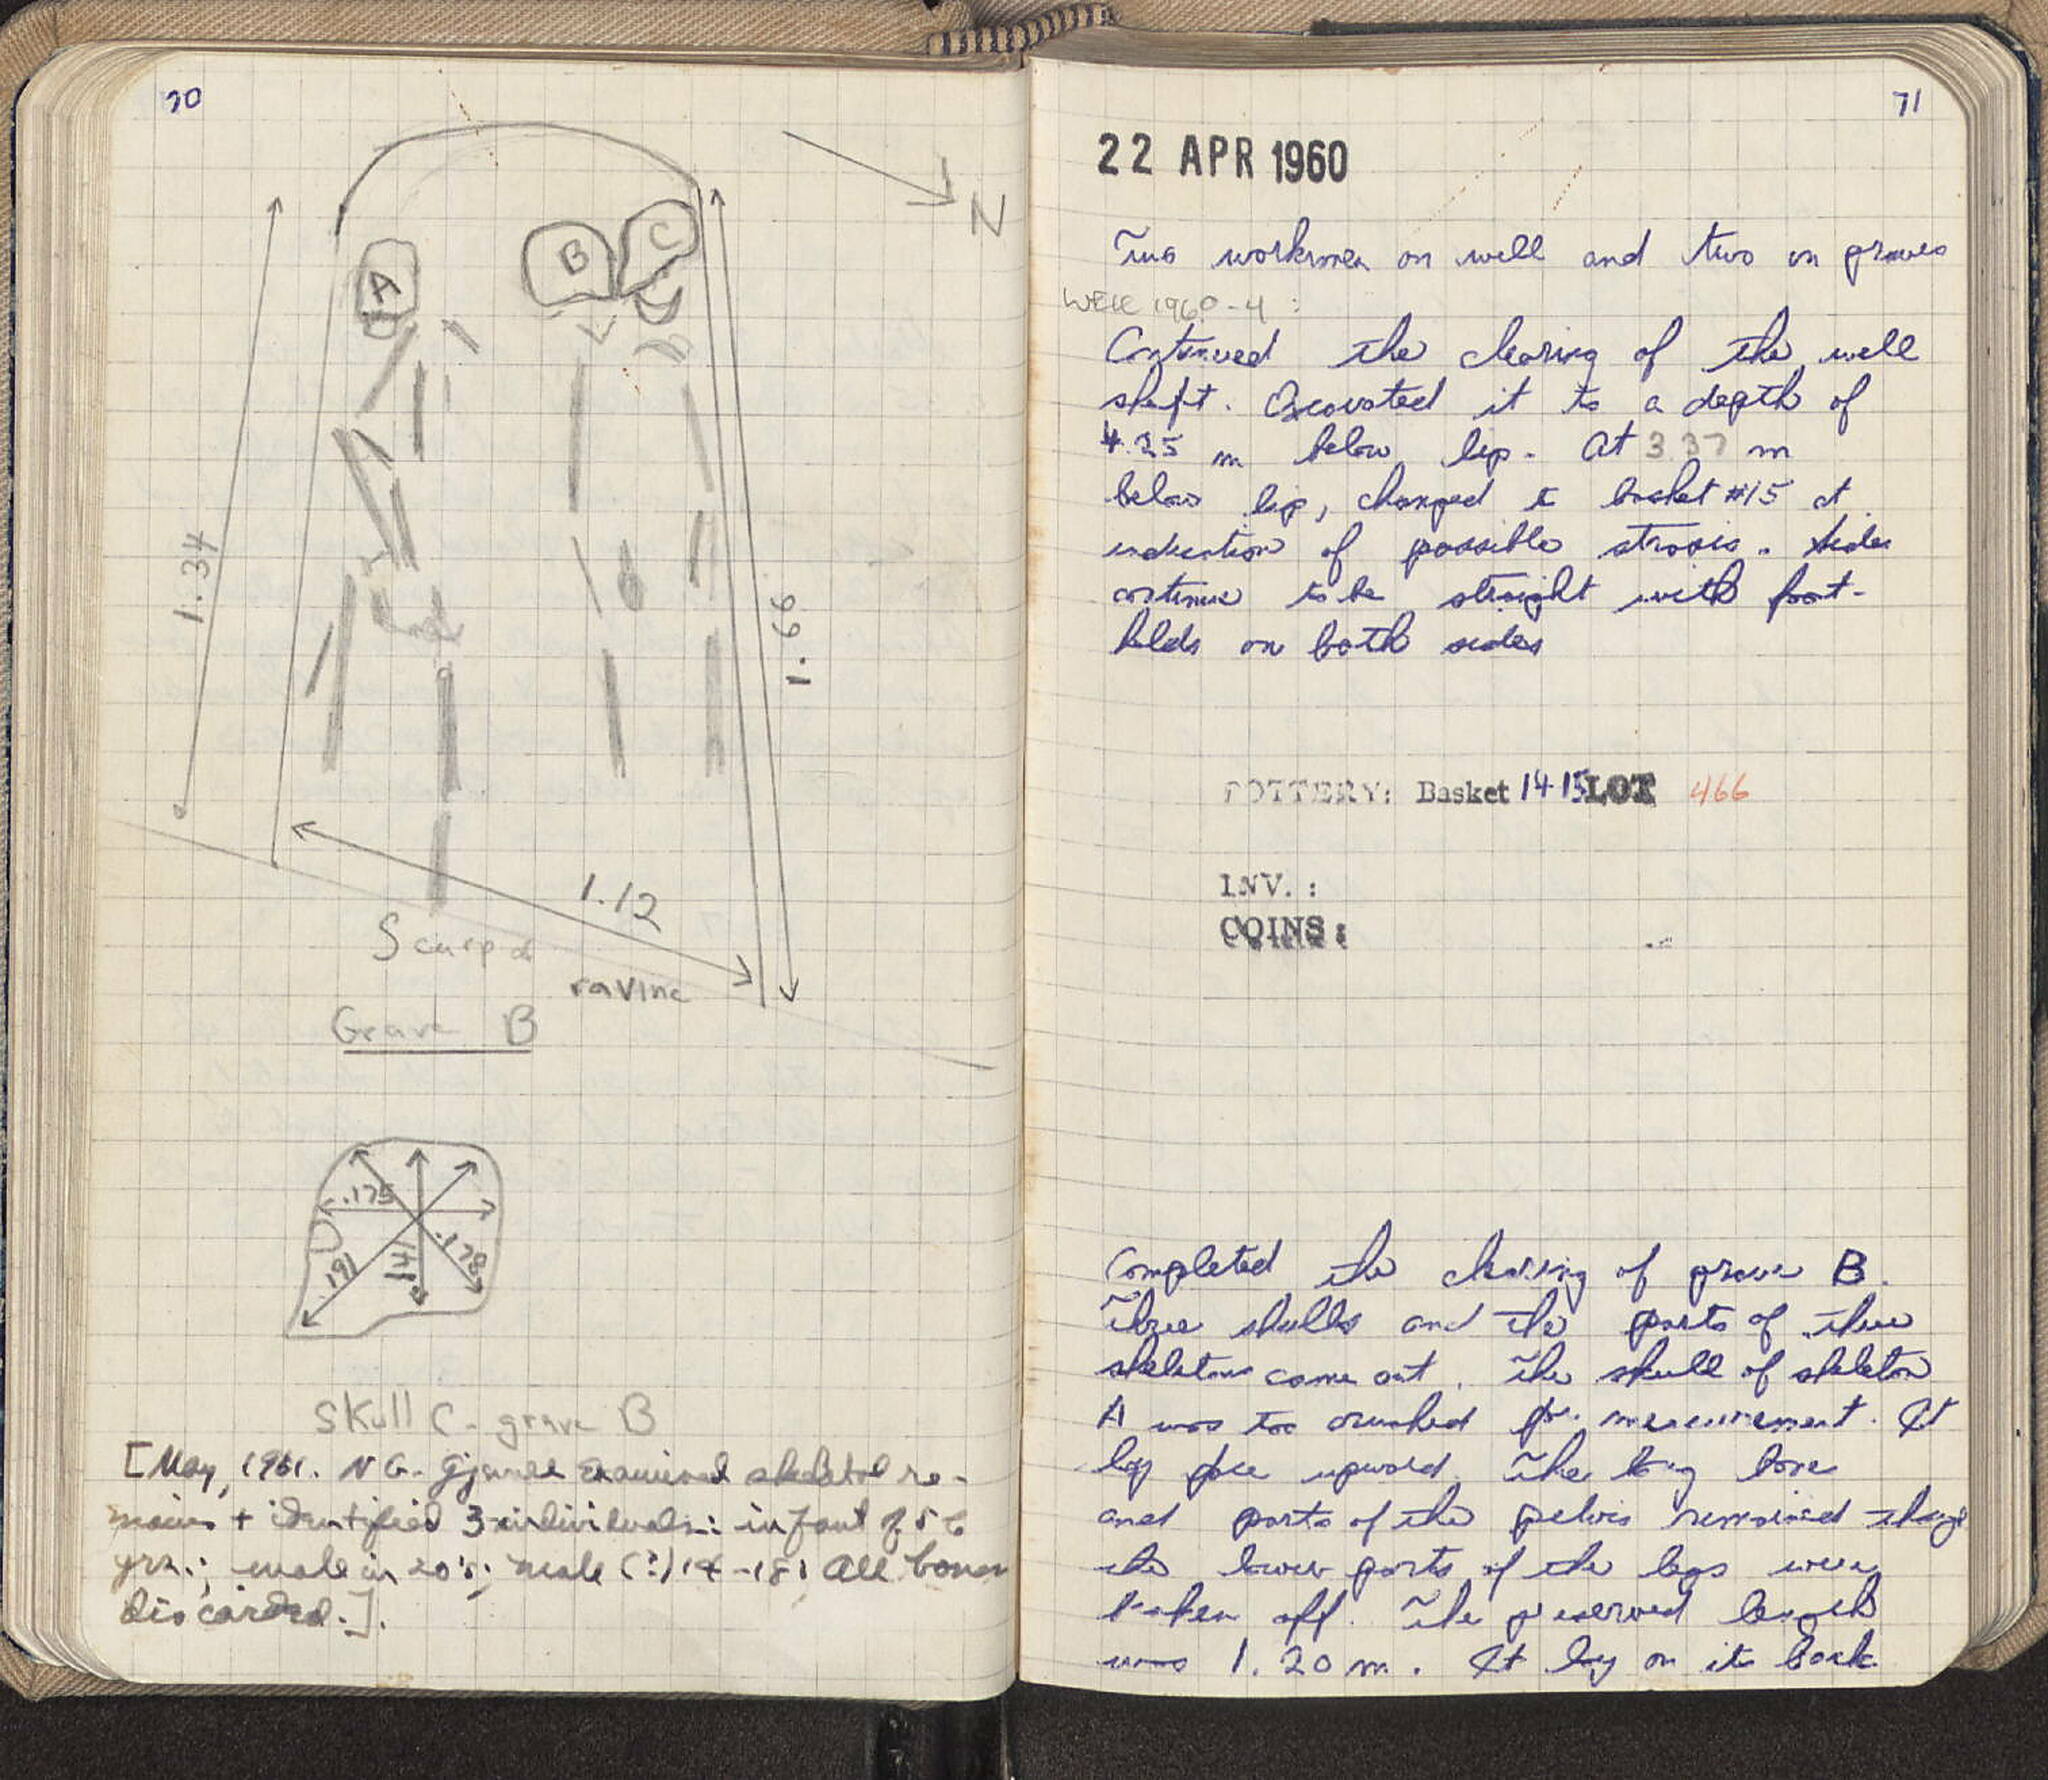 70
N
A
B
C
1.34
1.66
1.12
Scarp of
ravine
Grave B
.175
.191
.141
.178
Skull C - grave B
[May, 1961. N G. Gejvall examined skeletal re-
mains + identified 3 individuals: infant of 5-6
yrs.; male in 20's; male (?) 14-18. All bones
discarded.].
71
22 APR 1960
Two workmen on well and two on graves
WELL 1960-4:
Continued the clearing of the well
shaft. Excavated it to a depth of
4.25 m below lip. At 3.37 m
below lip, changed to basket #15 at
indication of possible strosis. Sides
continue to be straight with foot-
holds on both sides
POTTERY: Basket 14-15 LOT 466
INV.:
COINS:
Completed the clearing of grave B.
Three skulls and the parts of three
skeletons came out. The skull of skeleton
A was too crushed for measurement. It
lay face upward. The long bone
and parts of the pelvis remained though
the lower parts of the legs were
taken off. The preserved length
was 1.20 m. It lay on its back